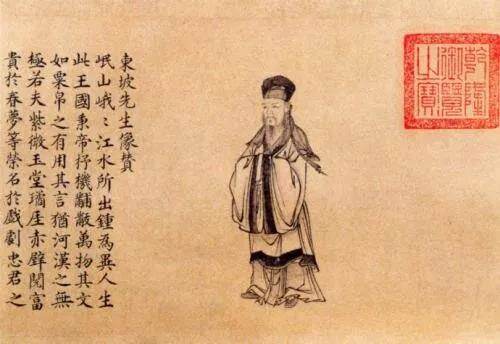 東坡先生像贊
岷山峨〻江水所出鍾為異人生
此王國秉帝杼機黼黻萬物其文
如粟帛之有用其言猶河漢之無
極若夫紫微玉堂瓊厓赤壁閱富
貴於春夢等榮名於戲劇忠君之
乾隆御覽之寶